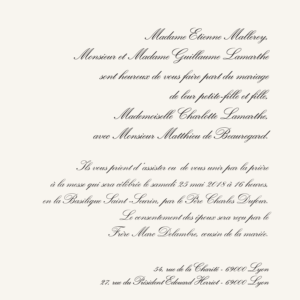 Madame Etienne Malleroy,
Monsieur et Madame Guillaume Lamarthe
sont heureux de vous faire part du mariage
de leur petite-fille et fille,
Mademoiselle Charlotte Lamarthe,
avec Monsieur Matthieu de Beauregard.
Ils vous prient d'assister ou de vous unir par la prière
à la messe qui sera célébrée le samedi 25 mai 2018 à 16 heures,
en la Basilique Saint-Sernin, par le Père Charles Dufour.
Le consentement des époux sera reçu par le
Frère Marc Delambre, cousin de la mariée.
54, rue de la Charité - 69000 Lyon
27, rue du Président Edouard Herriot - 69000 Lyon